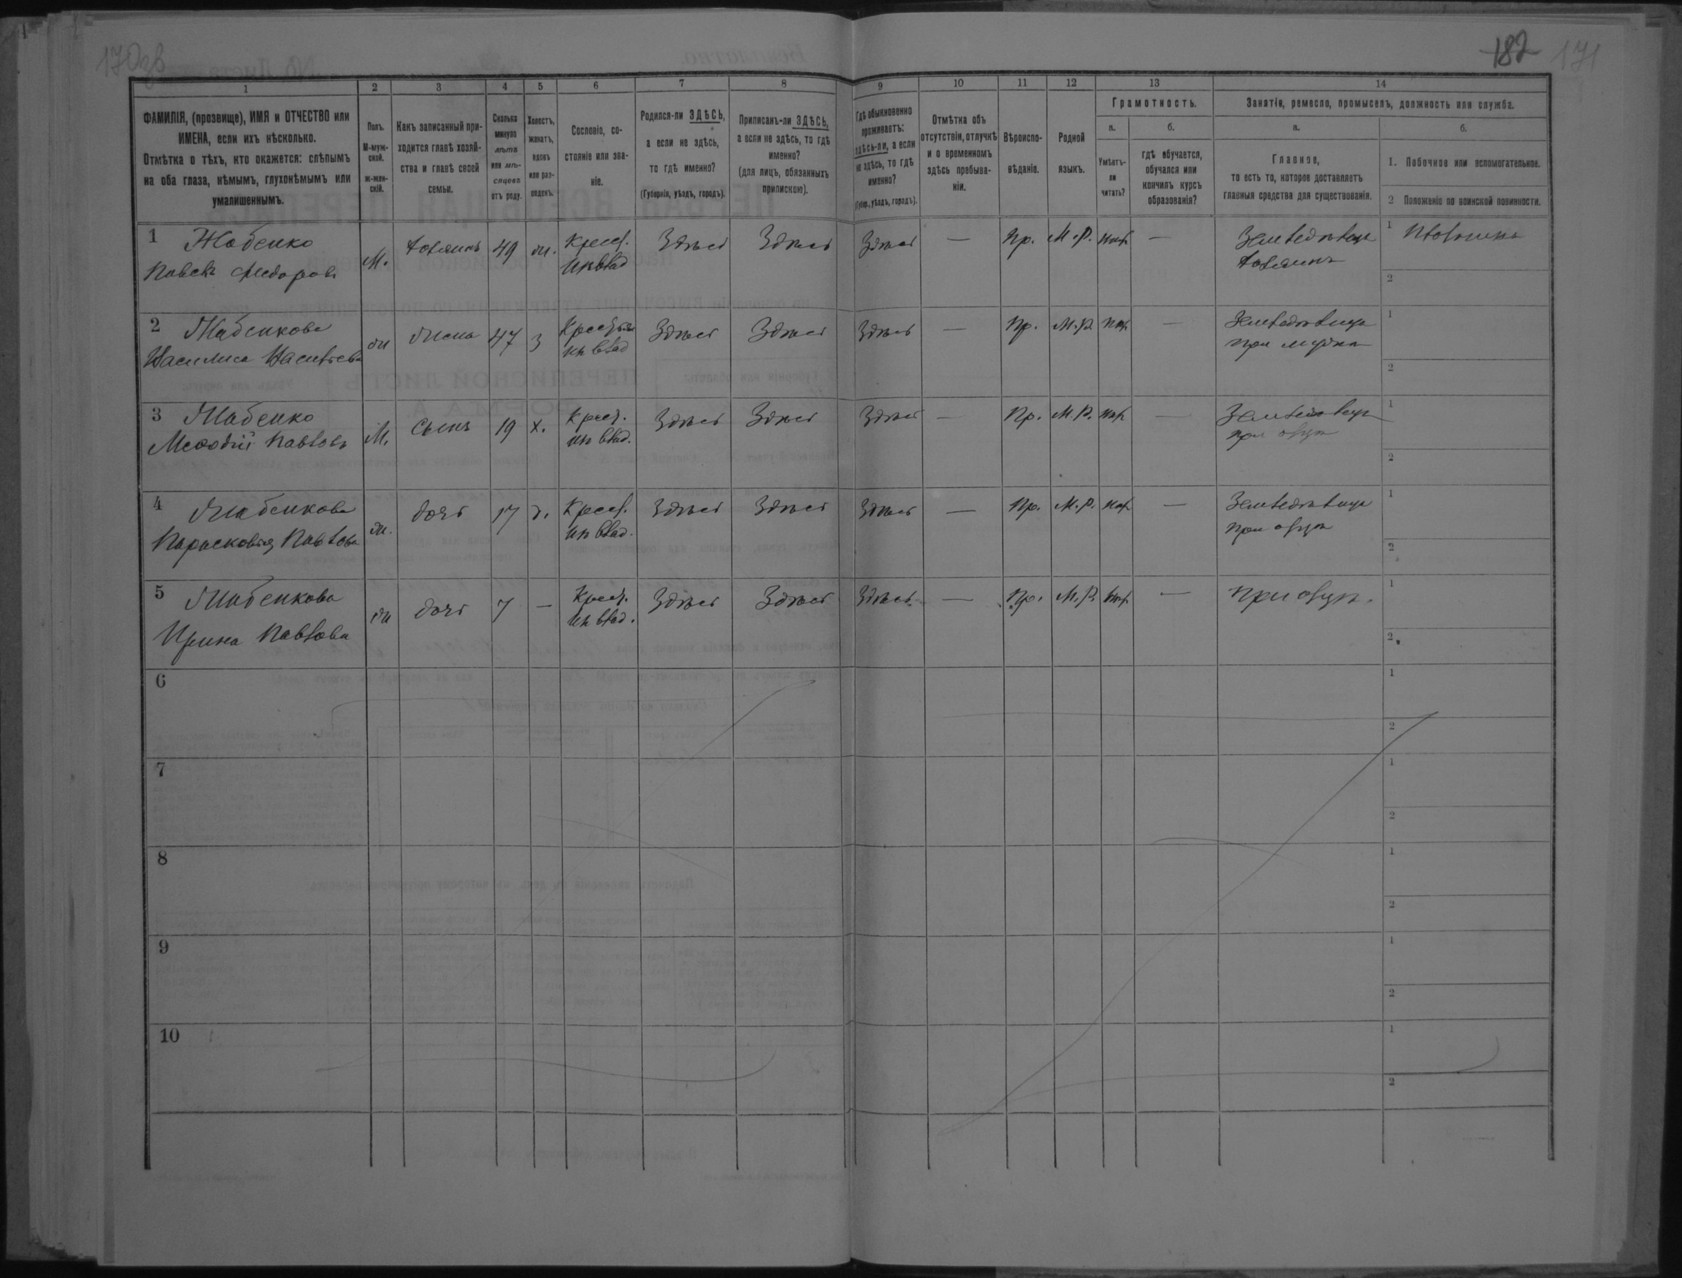 170об
182 171
1 2 3 4 5 6 7 8 9 10 11 12 13 14
ФАМИЛІЯ, (прозвище), ИМЯ и ОТЧЕСТВО или
ИМЕНА, если ихъ нѣсколько.
Отмѣтка о тѣхъ, кто окажется: слѣпымъ
на оба глаза, нѣмымъ, глухонѣмымъ или
умалишеннымъ.
Полъ.
М-муж-
ской.
ж-жен-
скій.
Какъ записанный при-
ходится главѣ хозяй-
ства и главѣ своей
семьи.
Сколько
минуло
лѣтъ
или мѣ-
сяцевъ
отъ роду.
Холостъ,
женатъ,
вдовъ
или раз-
веденъ.
Сословіе, со-
стояніе или зва-
ніе.
Родился-ли ЗДѢСЬ,
а если не здѣсь,
то гдѣ именно?
(Губернія, уѣздъ, городъ).
Приписанъ-ли ЗДѢСЬ,
а если не здѣсь, то гдѣ
именно?
(для лицъ, обязанныхъ
припискою).
Гдѣ обыкновенно
проживаетъ:
здѣсь-ли, а если
не здѣсь, то гдѣ
именно?
(Губ., уѣздъ, городъ).
Отмѣтка объ
отсутствіи, отлучкѣ
и о временномъ
здѣсь пребыва-
ніи.
Вѣроиспо-
вѣданіе.
Родной
языкъ.
Грамотность.
а. б.
Умѣетъ-
ли
читать?
гдѣ обучается,
обучался или
кончилъ курсъ
образованія?
Занятія, ремесло, промыселъ, должность или служба.
а. б.
Главное,
то есть то, которое доставляетъ
главныя средства для существованія.
1. Побочное или вспомогательное.
2 Положеніе по воинской повинности.
1 Жабенко
Павелъ Федоровъ
М. хозяинъ 49 ж. Крест.
Здѣсь Здѣсь Здѣсь — Пр. М.Р. —
хозяинъ
1
2
2 Жабенкова
Василиса
ж жена 47 з
Здѣсь Здѣсь Здѣсь — Пр. М.Р. —
при мужѣ
1
2
3 Жабенко
Меѳодій Павловъ
М. сынъ 19 х. Крест.
Здѣсь Здѣсь Здѣсь — Пр. М.Р. —
при отцѣ
1
2
4 Жабенкова
Парасковія Павлова
ж. дочь 17 д. Крест.
Здѣсь Здѣсь Здѣсь — Пр. М.Р. —
при отцѣ
1
2
5 Жабенкова
Ирина Павлова
ж дочь 7 — Крест.
Здѣсь Здѣсь Здѣсь — Пр. М.Р. —
при отцѣ.
1
2
6
1
2
7
1
2
8
1
2
9
1
2
10
1
2